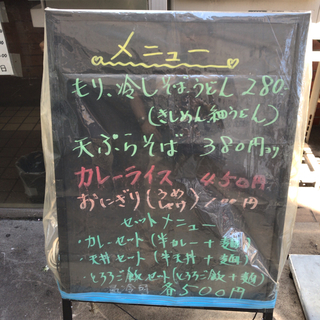 メニュー
もり、冷しそば、うどん 280
(きしめん、細うどん)
天ぷらそば 380円より
カレーライス 450円
おにぎり(うめ しゃけ) 100円
セットメニュー
・カレーセット(半カレー+麺)
・天丼セット(半天丼+麺)
・とろろご飯セット(とろろご飯+麺)
各500円